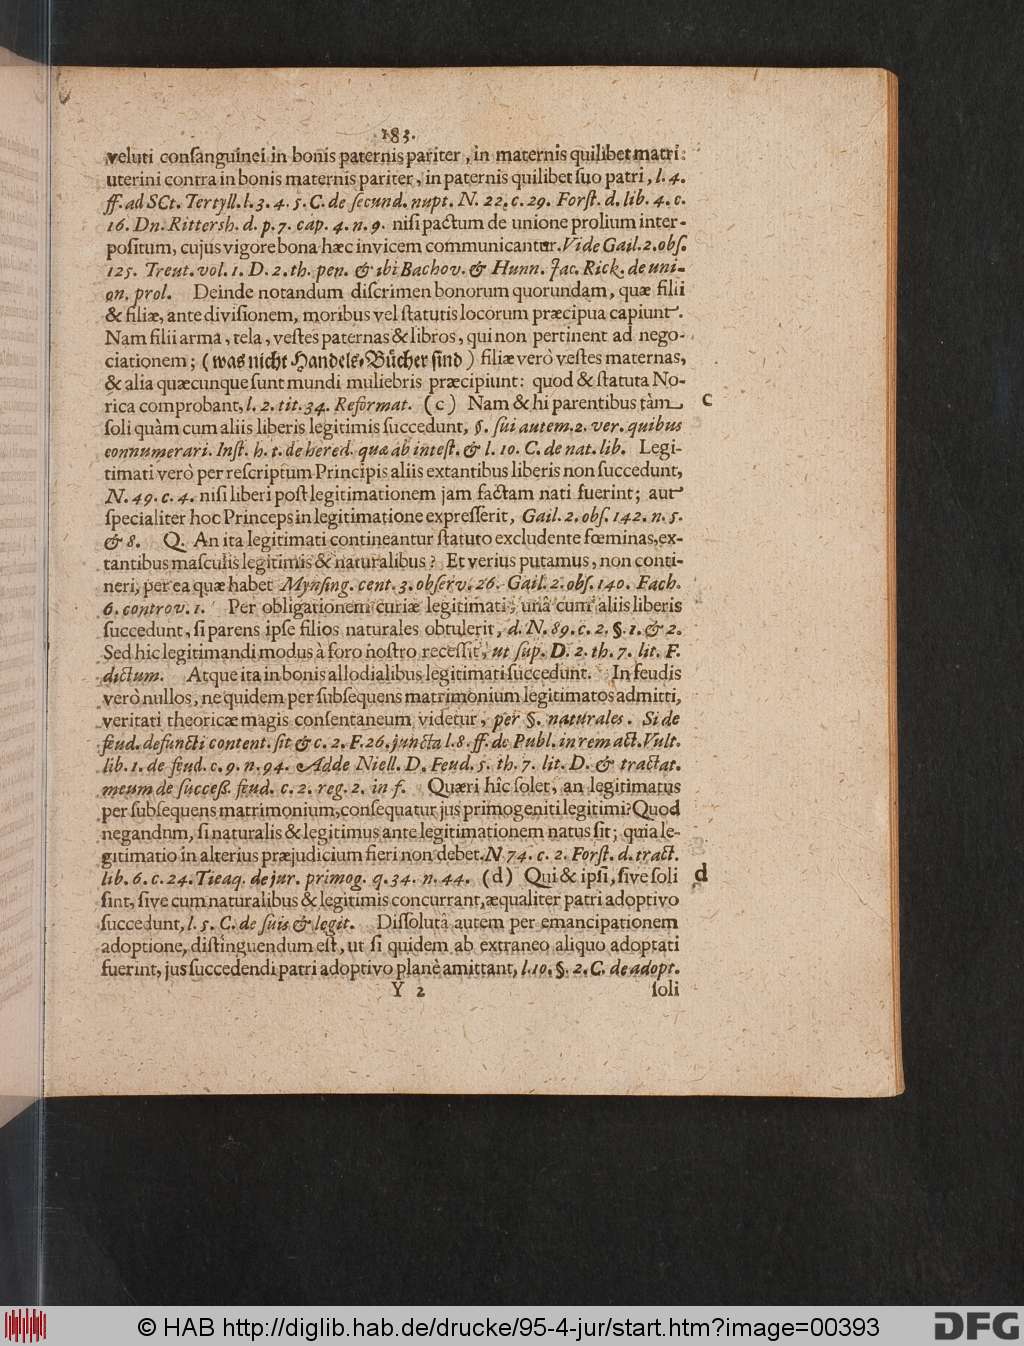 183.
veluti conſanguinei in bonis paternis pariter, in maternis quilibet matri:
uterini contra in bonis maternis pariter, in paternis quilibet ſuo patri, l. 4.
ff. ad SCt. Tertyll. l. 3. 4. 5. C. de ſecund. nupt. N. 22. c. 29. Forſt. d. lib. 4. c.
16. Dn. Rittersh. d. p. 7. cap. 4. n. 9. niſi pactum de unione prolium inter-
poſitum, cujus vigore bona hæc invicem communicantur. Vide Gail. 2. obſ.
125. Treut. vol. 1. D. 2. th. pen. & ibi Bachov. & Hunn. Jac. Rick. de uni-
on. prol. Deinde notandum diſcrimen bonorum quorundam, quæ filii
& filiæ, ante diviſionem, moribus vel ſtatutis locorum præcipua capiunt.
Nam filii arma, tela, veſtes paternas & libros, qui non pertinent ad nego-
ciationem; (was nicht Handels-Bücher ſind) filiæ verò veſtes maternas,
& alia quæcunque ſunt mundi muliebris præcipiunt: quod & ſtatuta No-
rica comprobant, l. 2. tit. 34. Reformat. (c) Nam & hi parentibus tàm c
ſoli quàm cum aliis liberis legitimis ſuccedunt, §. ſui autem. 2. ver. quibus
connumerari. Inſt. h. t. de hered. quæ ab inteſt. & l. 10. C. de nat. lib. Legi-
timati verò per reſcriptum Principis aliis extantibus liberis non ſuccedunt,
N. 49. c. 4. niſi liberi poſt legitimationem jam factam nati fuerint; aut
ſpecialiter hoc Princeps in legitimatione expreſſerit, Gail. 2. obſ. 142. n. 5.
& 8. Q. An ita legitimati contineantur ſtatuto excludente fœminas, ex-
tantibus maſculis legitimis & naturalibus? Et verius putamus, non conti-
neri, per ea quæ habet Mynſing. cent. 3. obſerv. 26. Gail. 2. obſ. 140. Fach.
6. controv. 1. Per obligationem curiæ legitimati, unâ cum aliis liberis
ſuccedunt, ſi parens ipſe filios naturales obtulerit, d. N. 89. c. 2. §. 1. & 2.
Sed hic legitimandi modus à foro noſtro receſſit, ut ſup. D. 2. th. 7. lit. F.
dictum. Atque ita in bonis allodialibus legitimati ſuccedunt. In feudis
verò nullos, ne quidem per ſubſequens matrimonium legitimatos admitti,
veritati theoricæ magis conſentaneum videtur, per §. naturales. Si de
feud. defuncti content. ſit & c. 2. F. 26. juncta l. 8. ff. de Publ. in rem act. Vult.
lib. 1. de feud. c. 9. n. 94. Adde Niell. D. Feud. 5. th. 7. lit. D. & tractat.
meum de ſucceß. feud. c. 2. reg. 2. in f. Quæri hîc ſolet, an legitimatus
per ſubſequens matrimonium, conſequatur jus primogeniti legitimi? Quod
negandum, ſi naturalis & legitimus ante legitimationem natus ſit; quia le-
gitimatio in alterius præjudicium fieri non debet. N. 74. c. 2. Forſt. d. tract.
lib. 6. c. 24. Tieaq. de jur. primog. q. 34. n. 44. (d) Qui & ipſi, ſive ſoli d
ſint, ſive cum naturalibus & legitimis concurrant, æqualiter patri adoptivo
ſuccedunt, l. 5. C. de ſuis & legit. Diſſolutâ autem per emancipationem
adoptione, diſtinguendum eſt, ut ſi quidem ab extraneo aliquo adoptati
fuerint, jus ſuccedendi patri adoptivo planè amittant, l. 10. §. 2. C. de adopt.
Y 2 ſoli
© HAB http://diglib.hab.de/drucke/95-4-jur/start.htm?image=00393 DFG